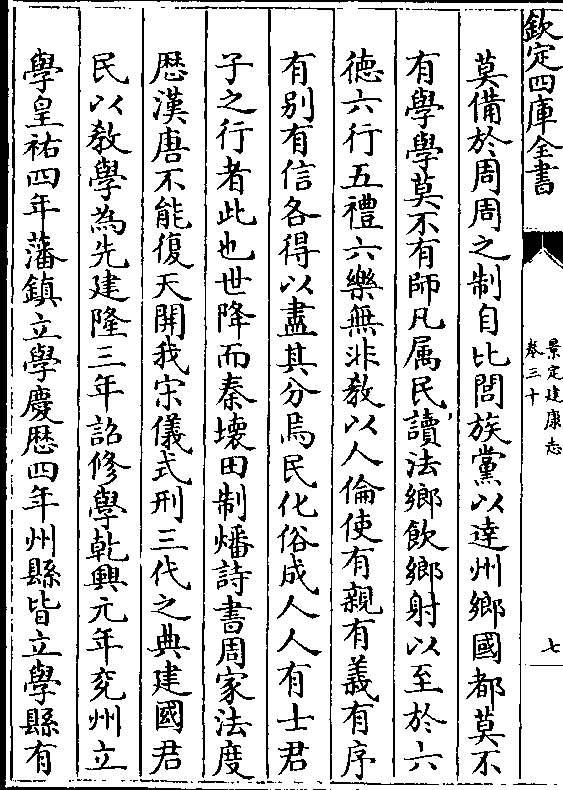 欽定四庫全書
景定建康志
卷三十
七
莫備於周周之制自比閭族黨以達州鄉國都莫不
有學學莫不有師凡属民讀法鄉飲鄉射以至於六
德六行五禮六樂無非教以人倫使有親有義有序
有别有信各得以盡其分焉民化俗成人人有士君
子之行者此也世降而秦壊田制燔詩書周家法度
歴漢唐不能復天開我宋儀式刑三代之典建國君
民以敎學為先建隆三年詔修學乾興元年兖州立
學皇祐四年藩鎮立學慶歴四年州縣皆立學縣有